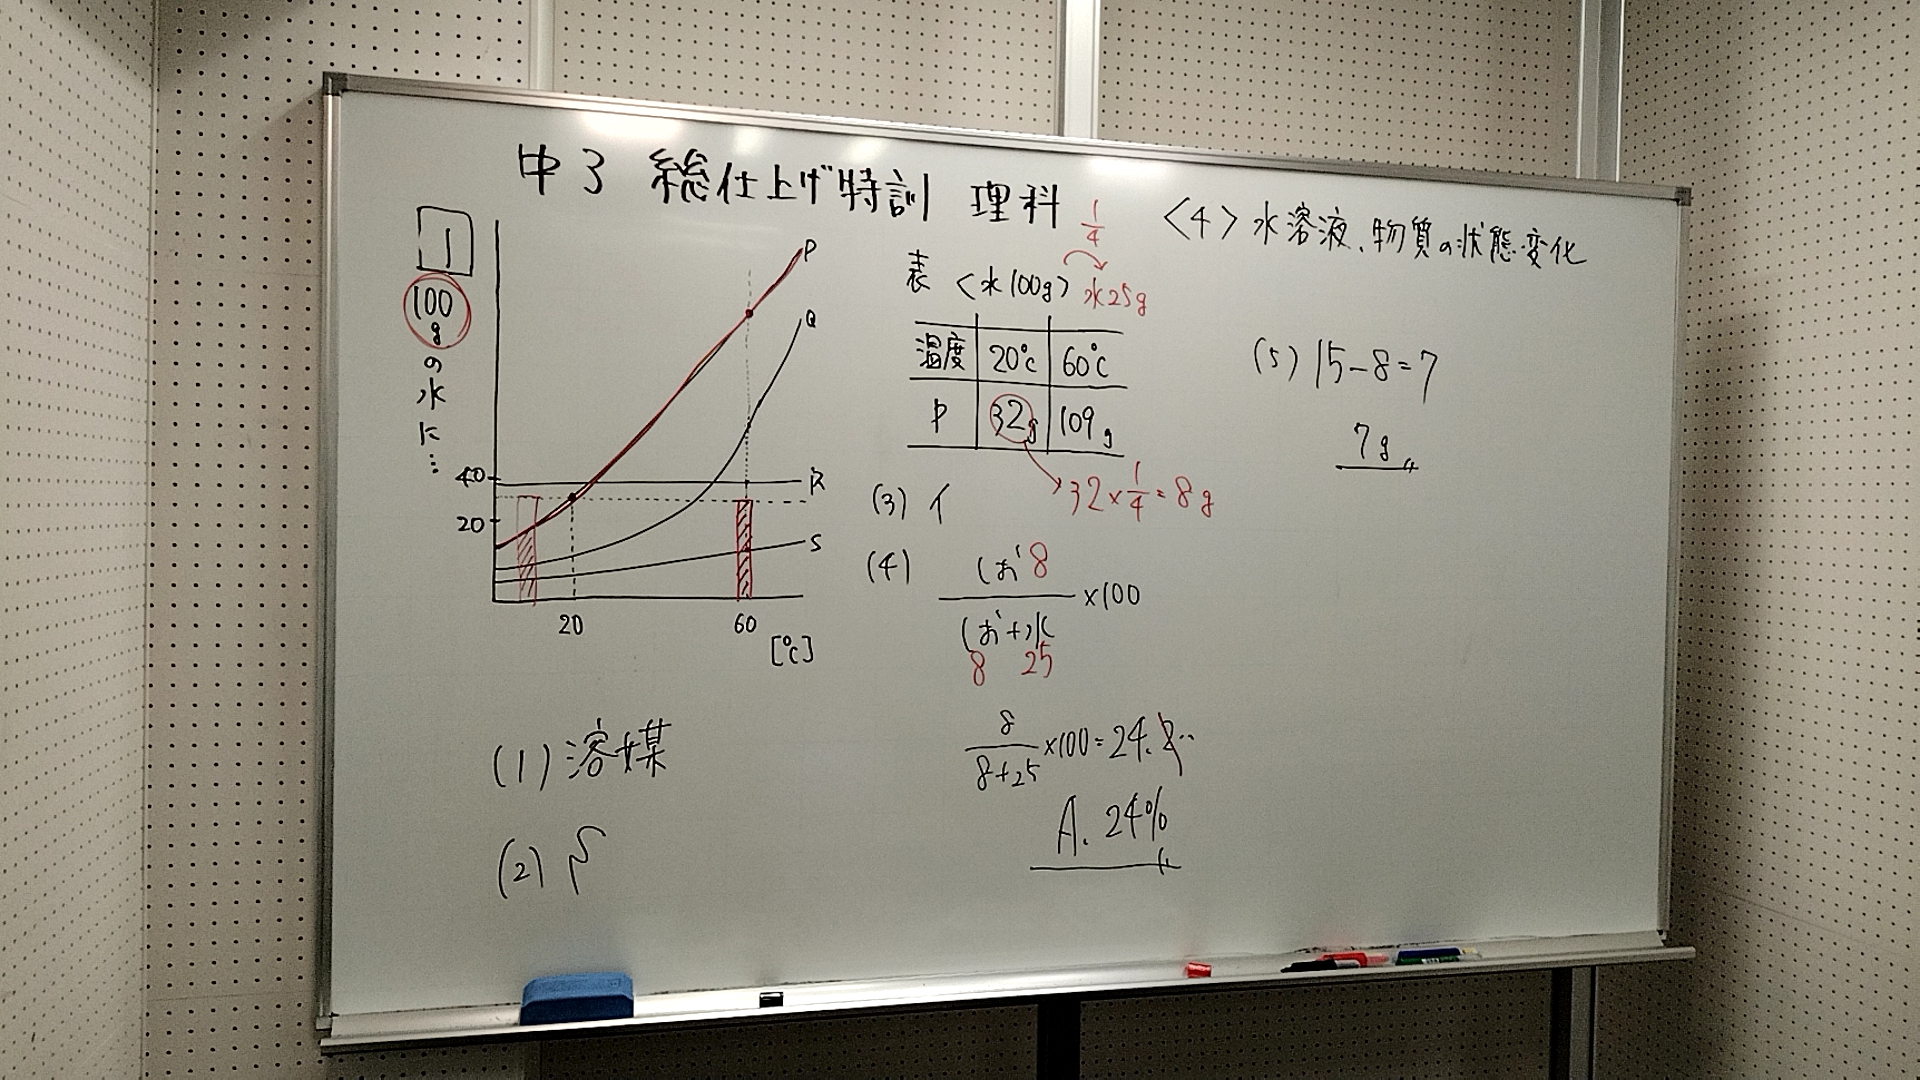 中3 総仕上げ特訓 理科
<4> 水溶液、物質の状態変化
1
100gの水に…
P
Q
R
S
40
20
20
60
[℃]
(1) 溶媒
(2)
表 <水100g> 水25g
1/4
温度 20℃ 60℃
P 32g 109g
32×1/4=8g
(3) イ
(4) しお 8
しお+水 ×100
8 25
8/8+25 ×100=24.2…
A. 24%
(5) 15-8=7
7g